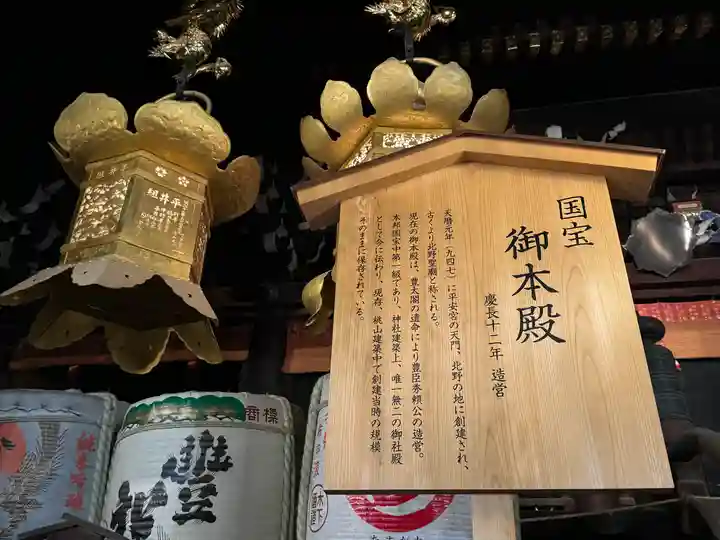 国宝
御本殿
慶長十二年 造営
天暦元年(九四七)に平安宮の天門、北野の地に創建され、
古くより北野聖廟と称される。
現在の御本殿は、豊太閤の遺命により豊臣秀頼公の造営。
本邦国宝中第一級であり、神社建築上、唯一無二の御社殿
として今に伝わり、現存、桃山建築中で創建当時の規模
そのままに保存されている。
平井組
商標